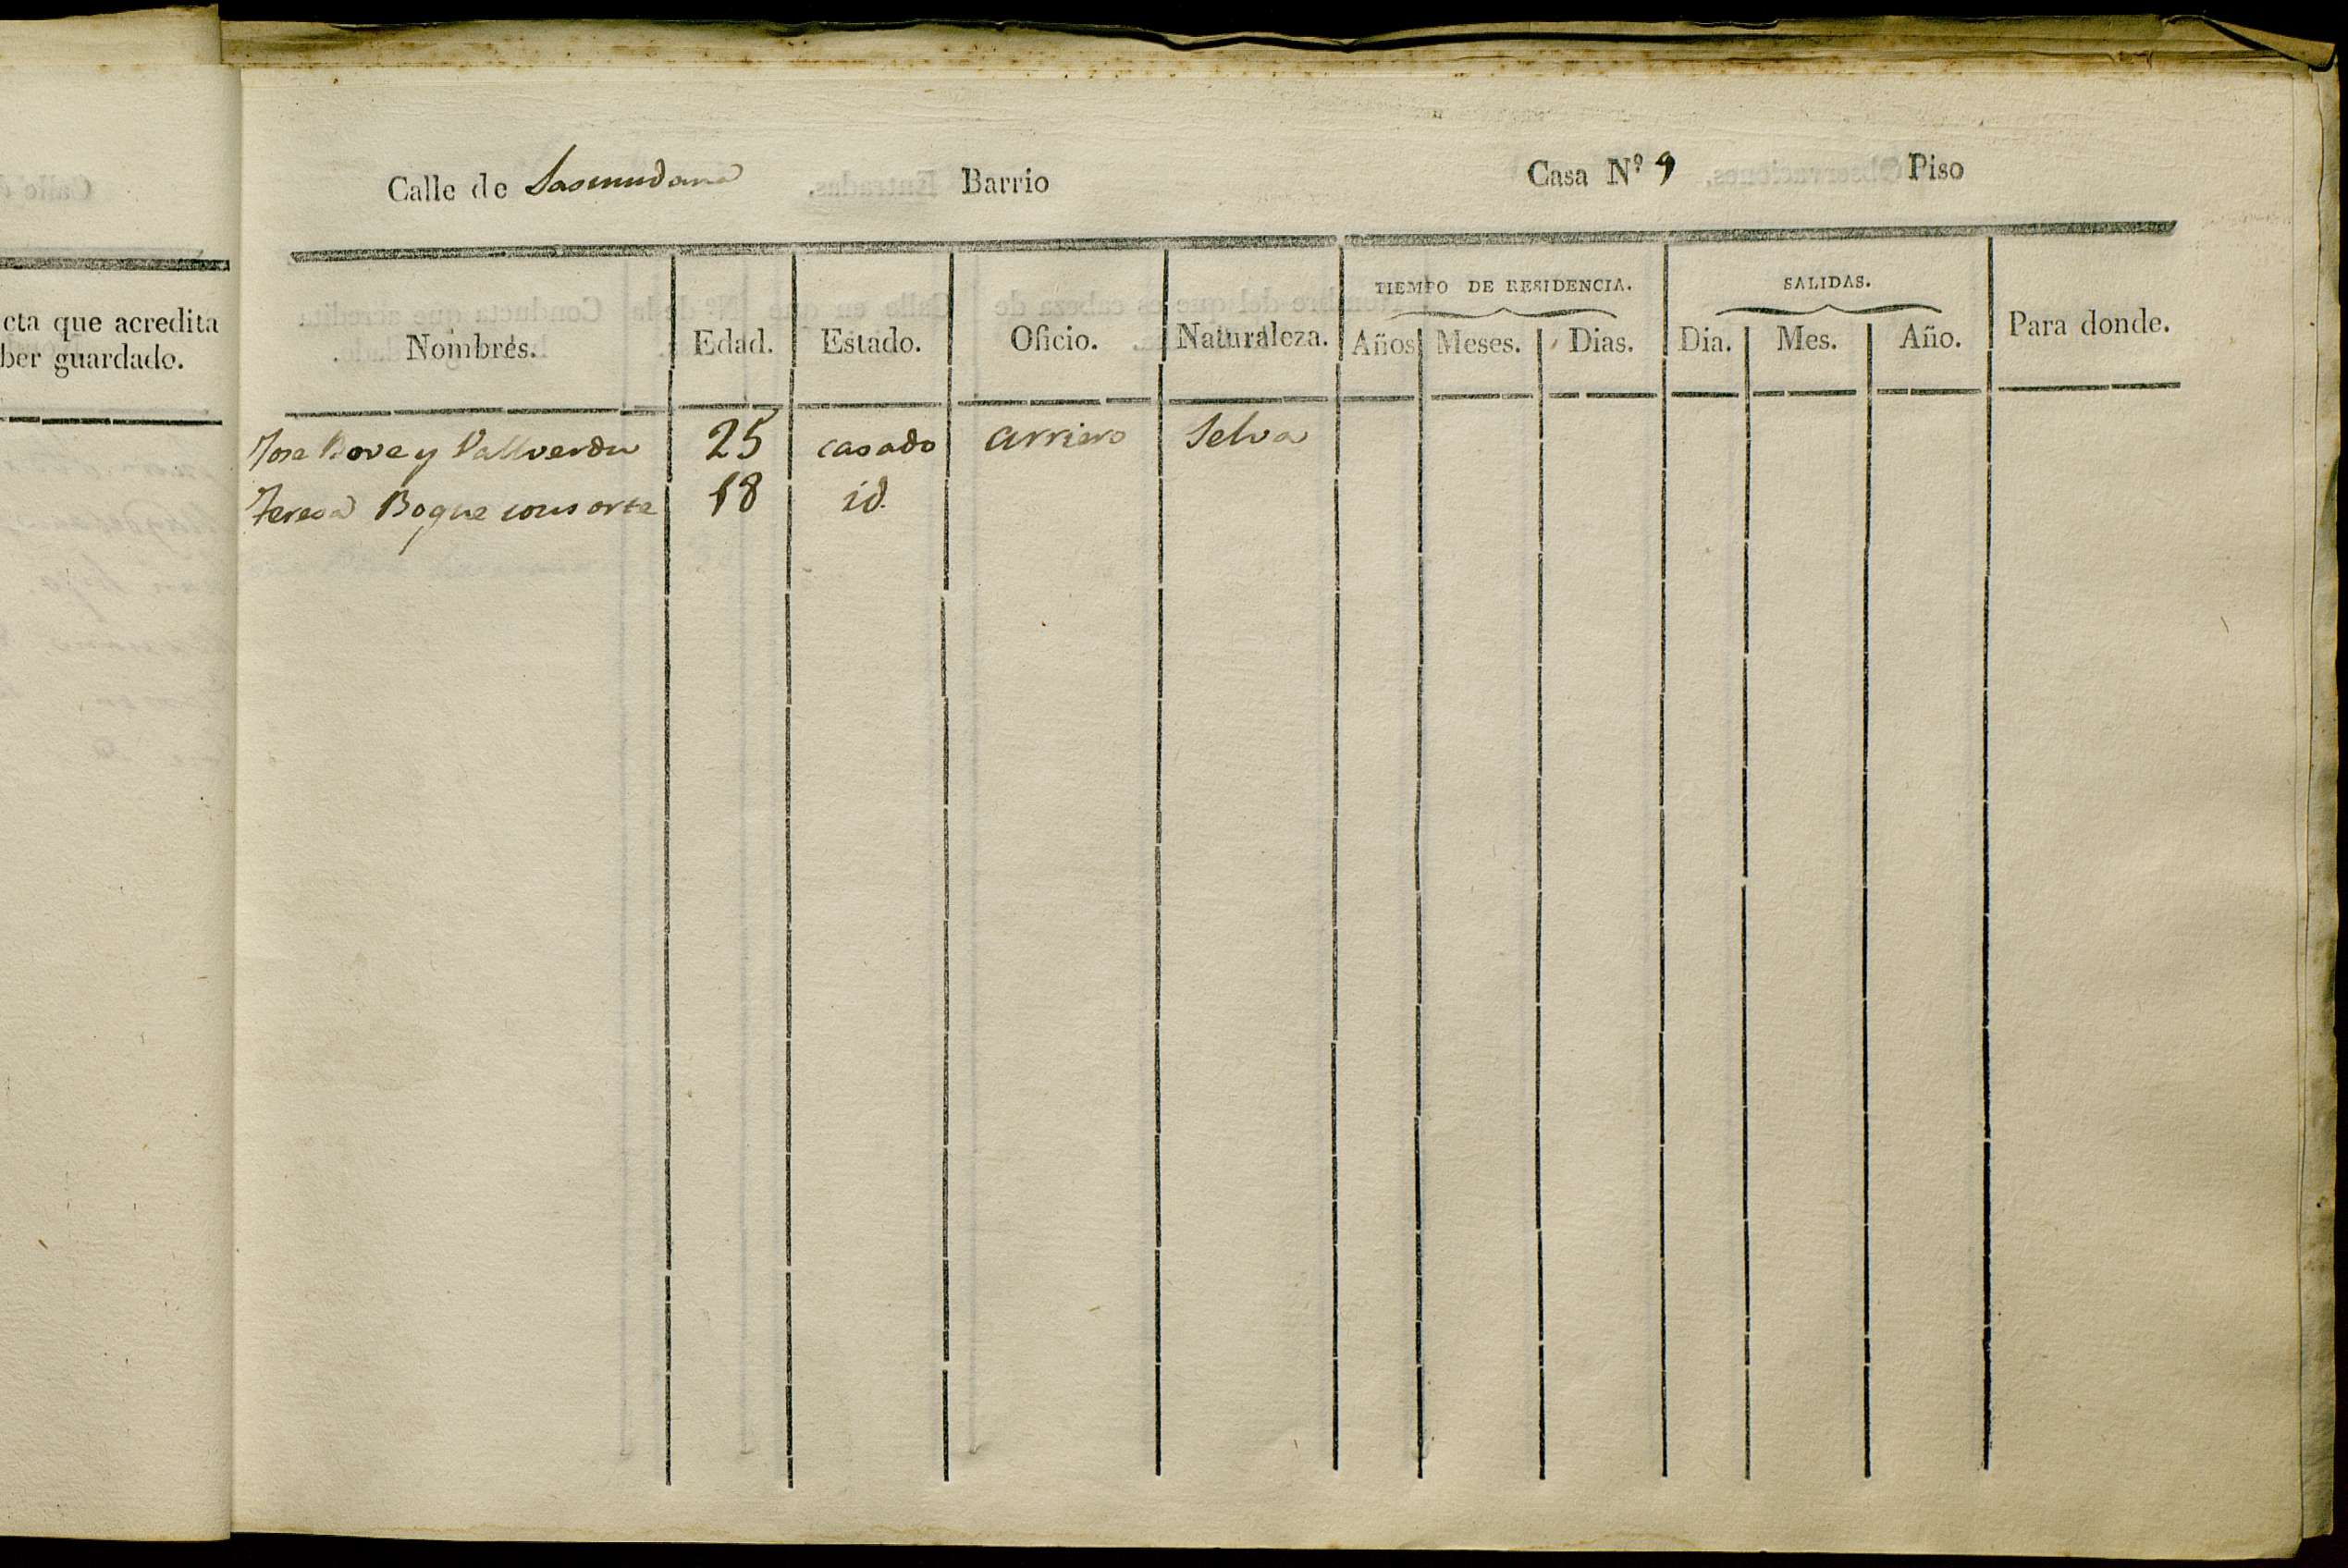 Calle de Sasmudana Barrio Casa Nº 9 Piso
cta que acredita
ber guardado.
TIEMPO DE RESIDENCIA. SALIDAS.
Nombres. Edad. Estado. Oficio. Naturaleza. Años Meses. Dias. Dia. Mes. Año. Para donde.
Jose Bove y Vallverdu 25 casado arriero Selva
Teresa Boque consorte 18 id.